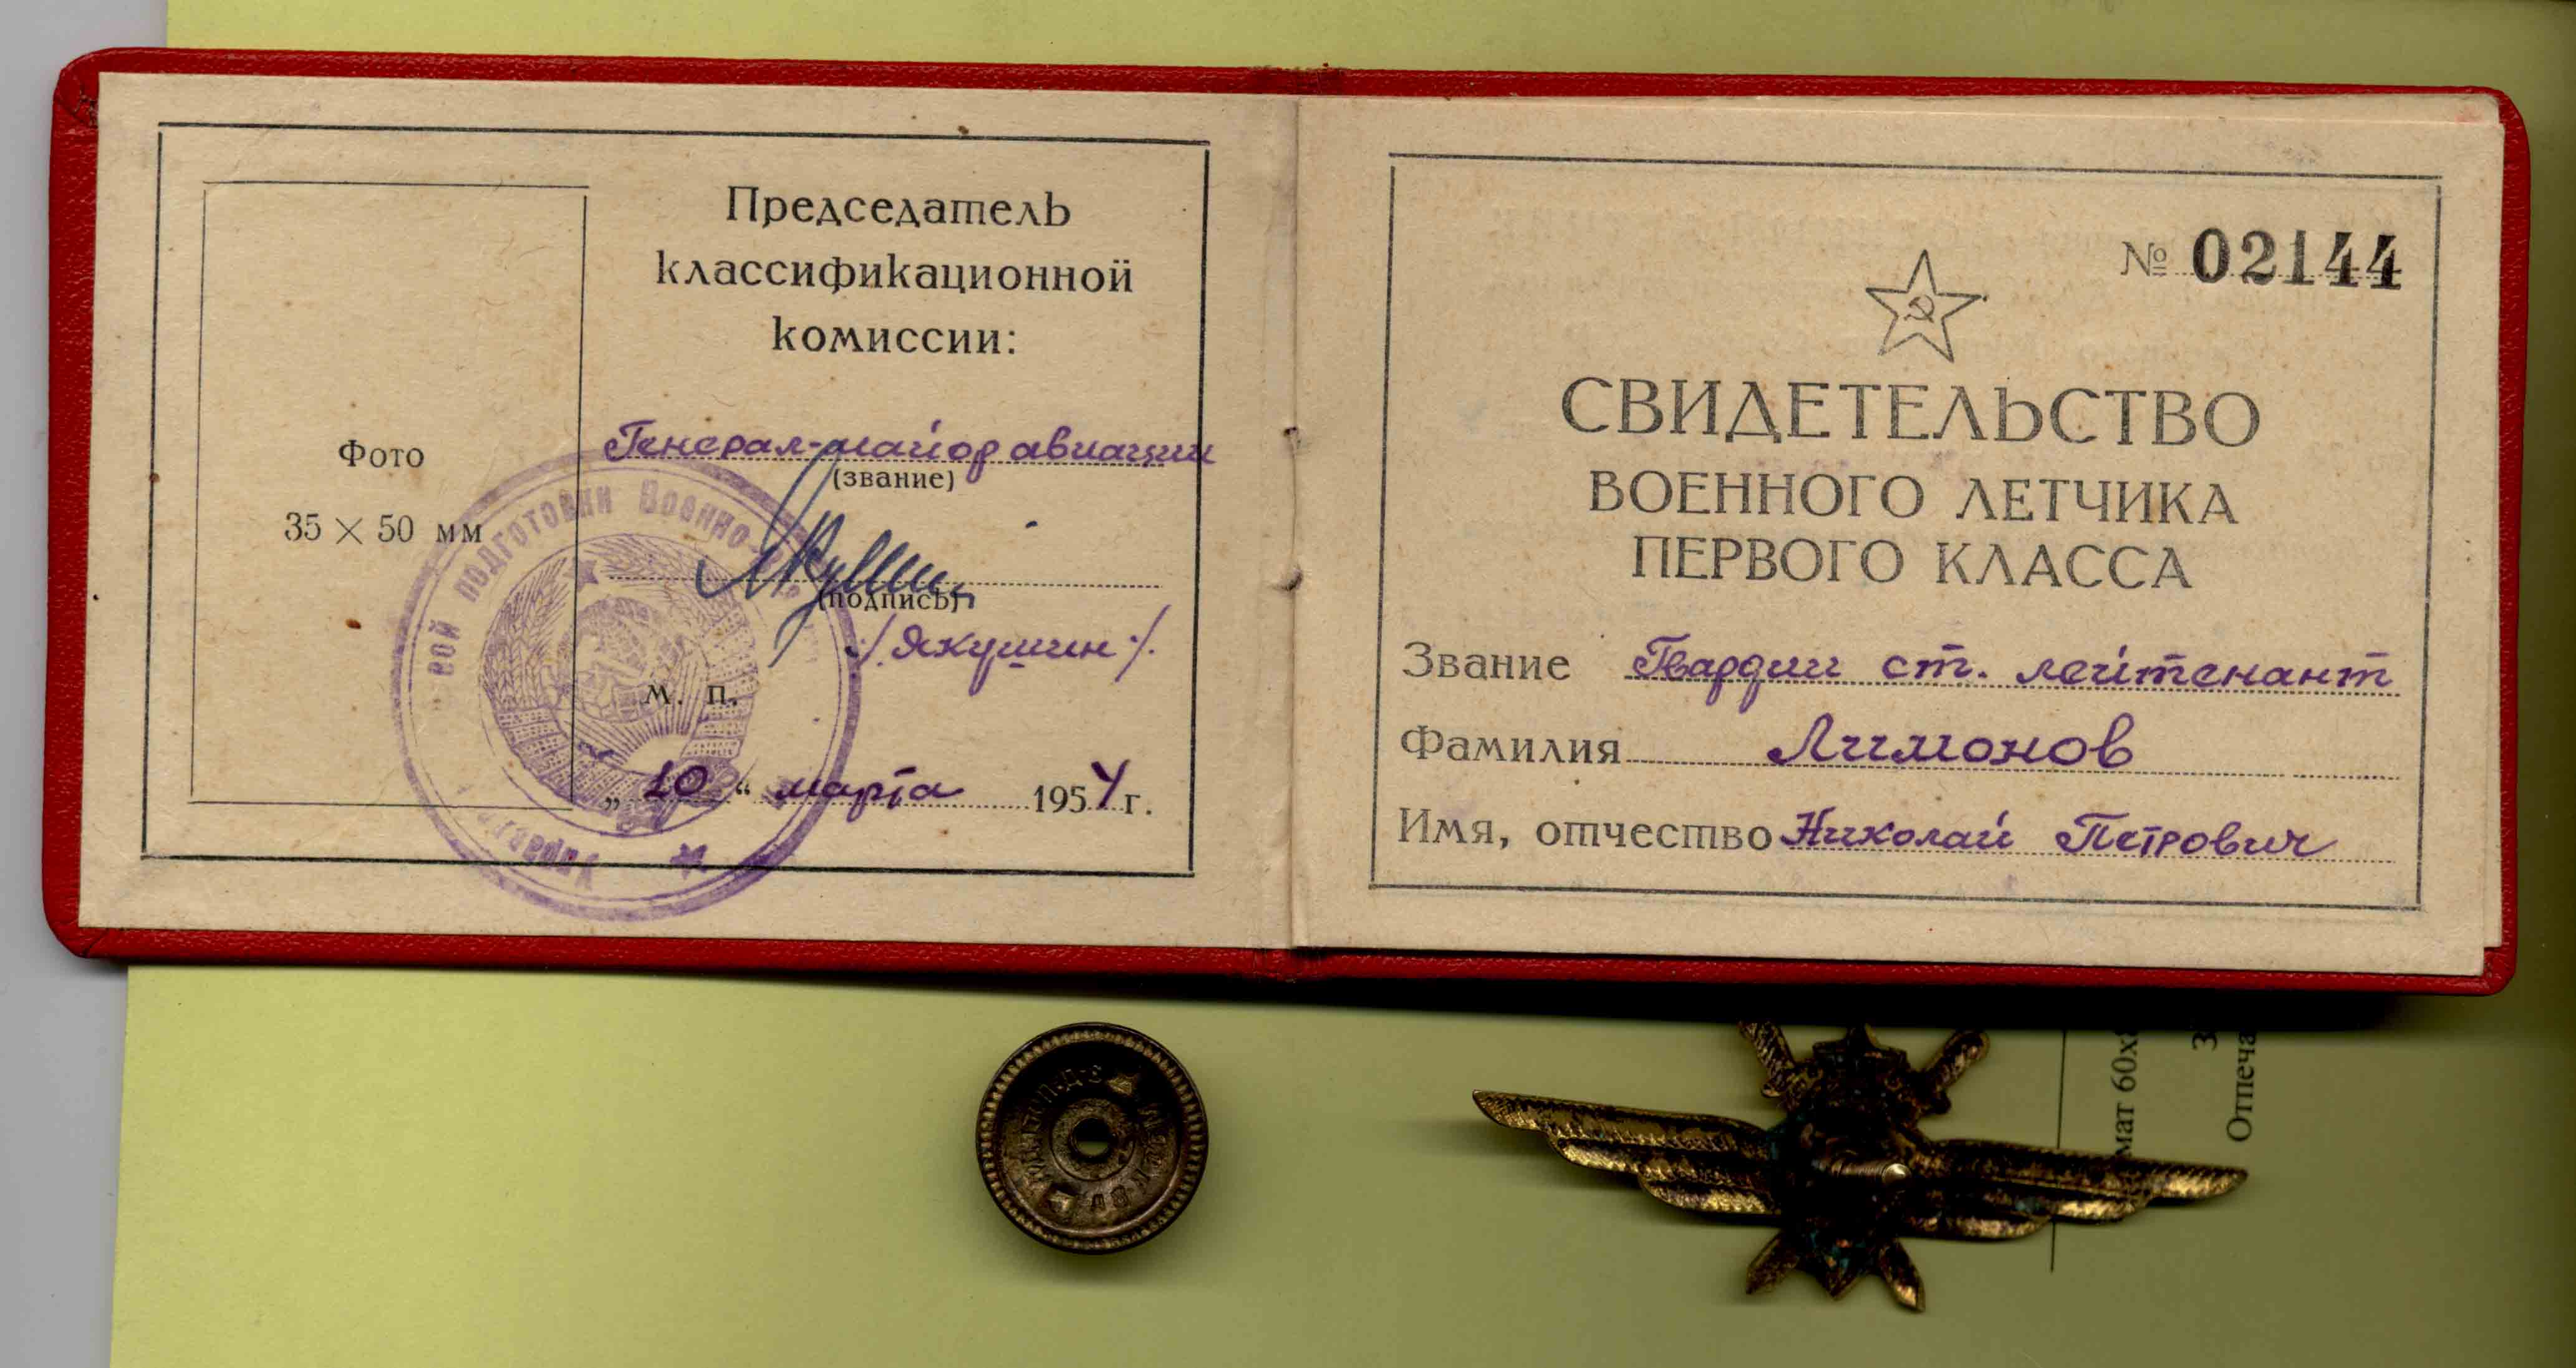 Председатель
классификационной
комиссии:
Генерал-майор авиации
(звание)
Фото
35 × 50 мм
(подпись)
/Якушин/.
М. П.
„10“ марта 1954 г.
вой подготовки Военно-
№ 02144
СВИДЕТЕЛЬСТВО
ВОЕННОГО ЛЕТЧИКА
ПЕРВОГО КЛАССА
Звание Гвардии ст. лейтенант
Фамилия Лимонов
Имя, отчество Николай Петрович
мат 60х
Отпеча